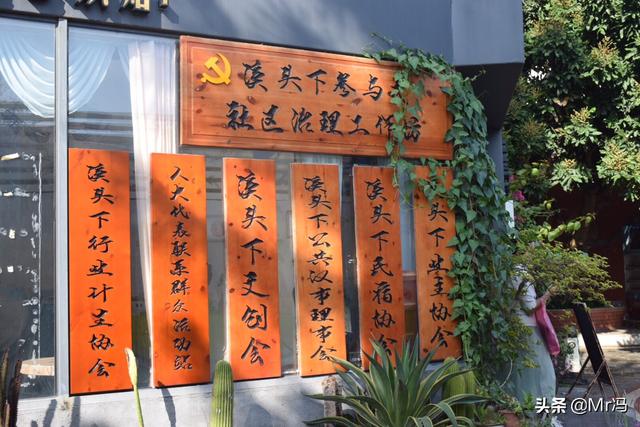 溪头下参与
社区治理工作坊
溪头下行业计生协会
人大代表联系群众活动站
溪头下文创会
溪头下公共议事理事会
溪头下民宿协会
头下业主协会
头条 @Mr冯